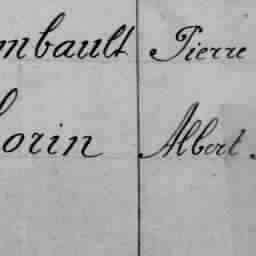 mbault Pierre
orin Albert.